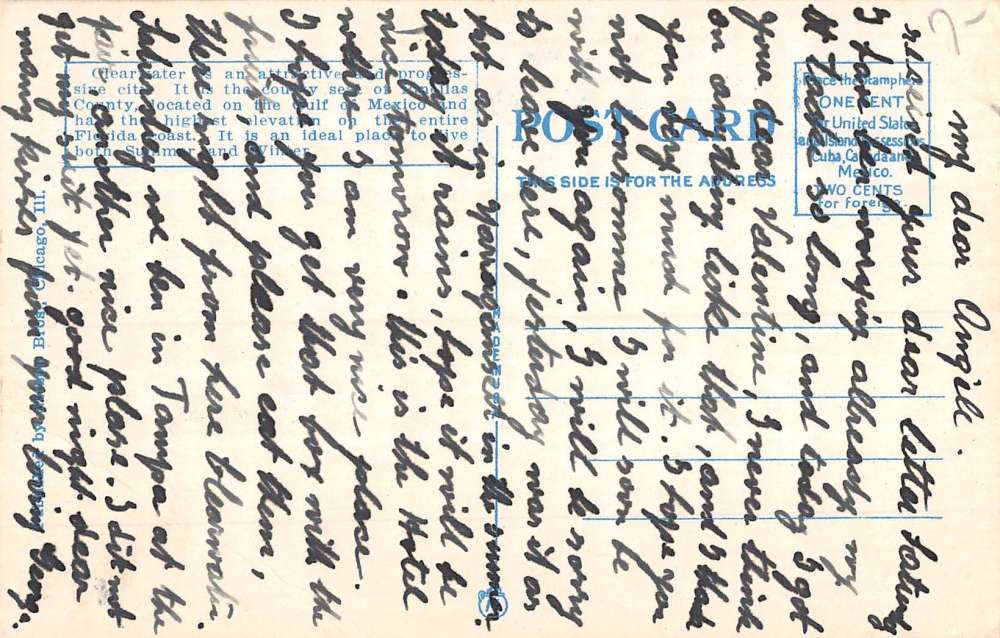 Clearwater is an attractive and progres-
sive city. It is the county seat of Pinellas
County, located on the Gulf of Mexico and
has the highest elevation on the entire
Florida coast. It is an ideal place to live
both Summer and Winter.
POST CARD
THIS SIDE IS FOR THE ADDRESS
Place the Stamp here
ONE CENT
for United States
and Island Possessions
Cuba, Canada and
Mexico.
TWO CENTS
for foreign.
Bros., Chicago, Ill.
MADE IN U.S.A.
my dear
reseived your dear letter today
I have ben worrying allready my
it took so long, and today I got
your dear Valentine, I never think
on anything like that, and I thank
you very much for it. I hope you
not lonesomme I will soon be
with you again, I will be sorry
to leave here, jesterday was it as
hot as in in the summer.
today it rains, hope it will be
nice tomorow. this is the Hotel
were I am very nice place.
I hope you get that box with the
fruit and please eat them,
they from here
we ben in Tampa at the
fair. another nice plase. I dit not
get my suit yet. good night dear
many kisses from your loving